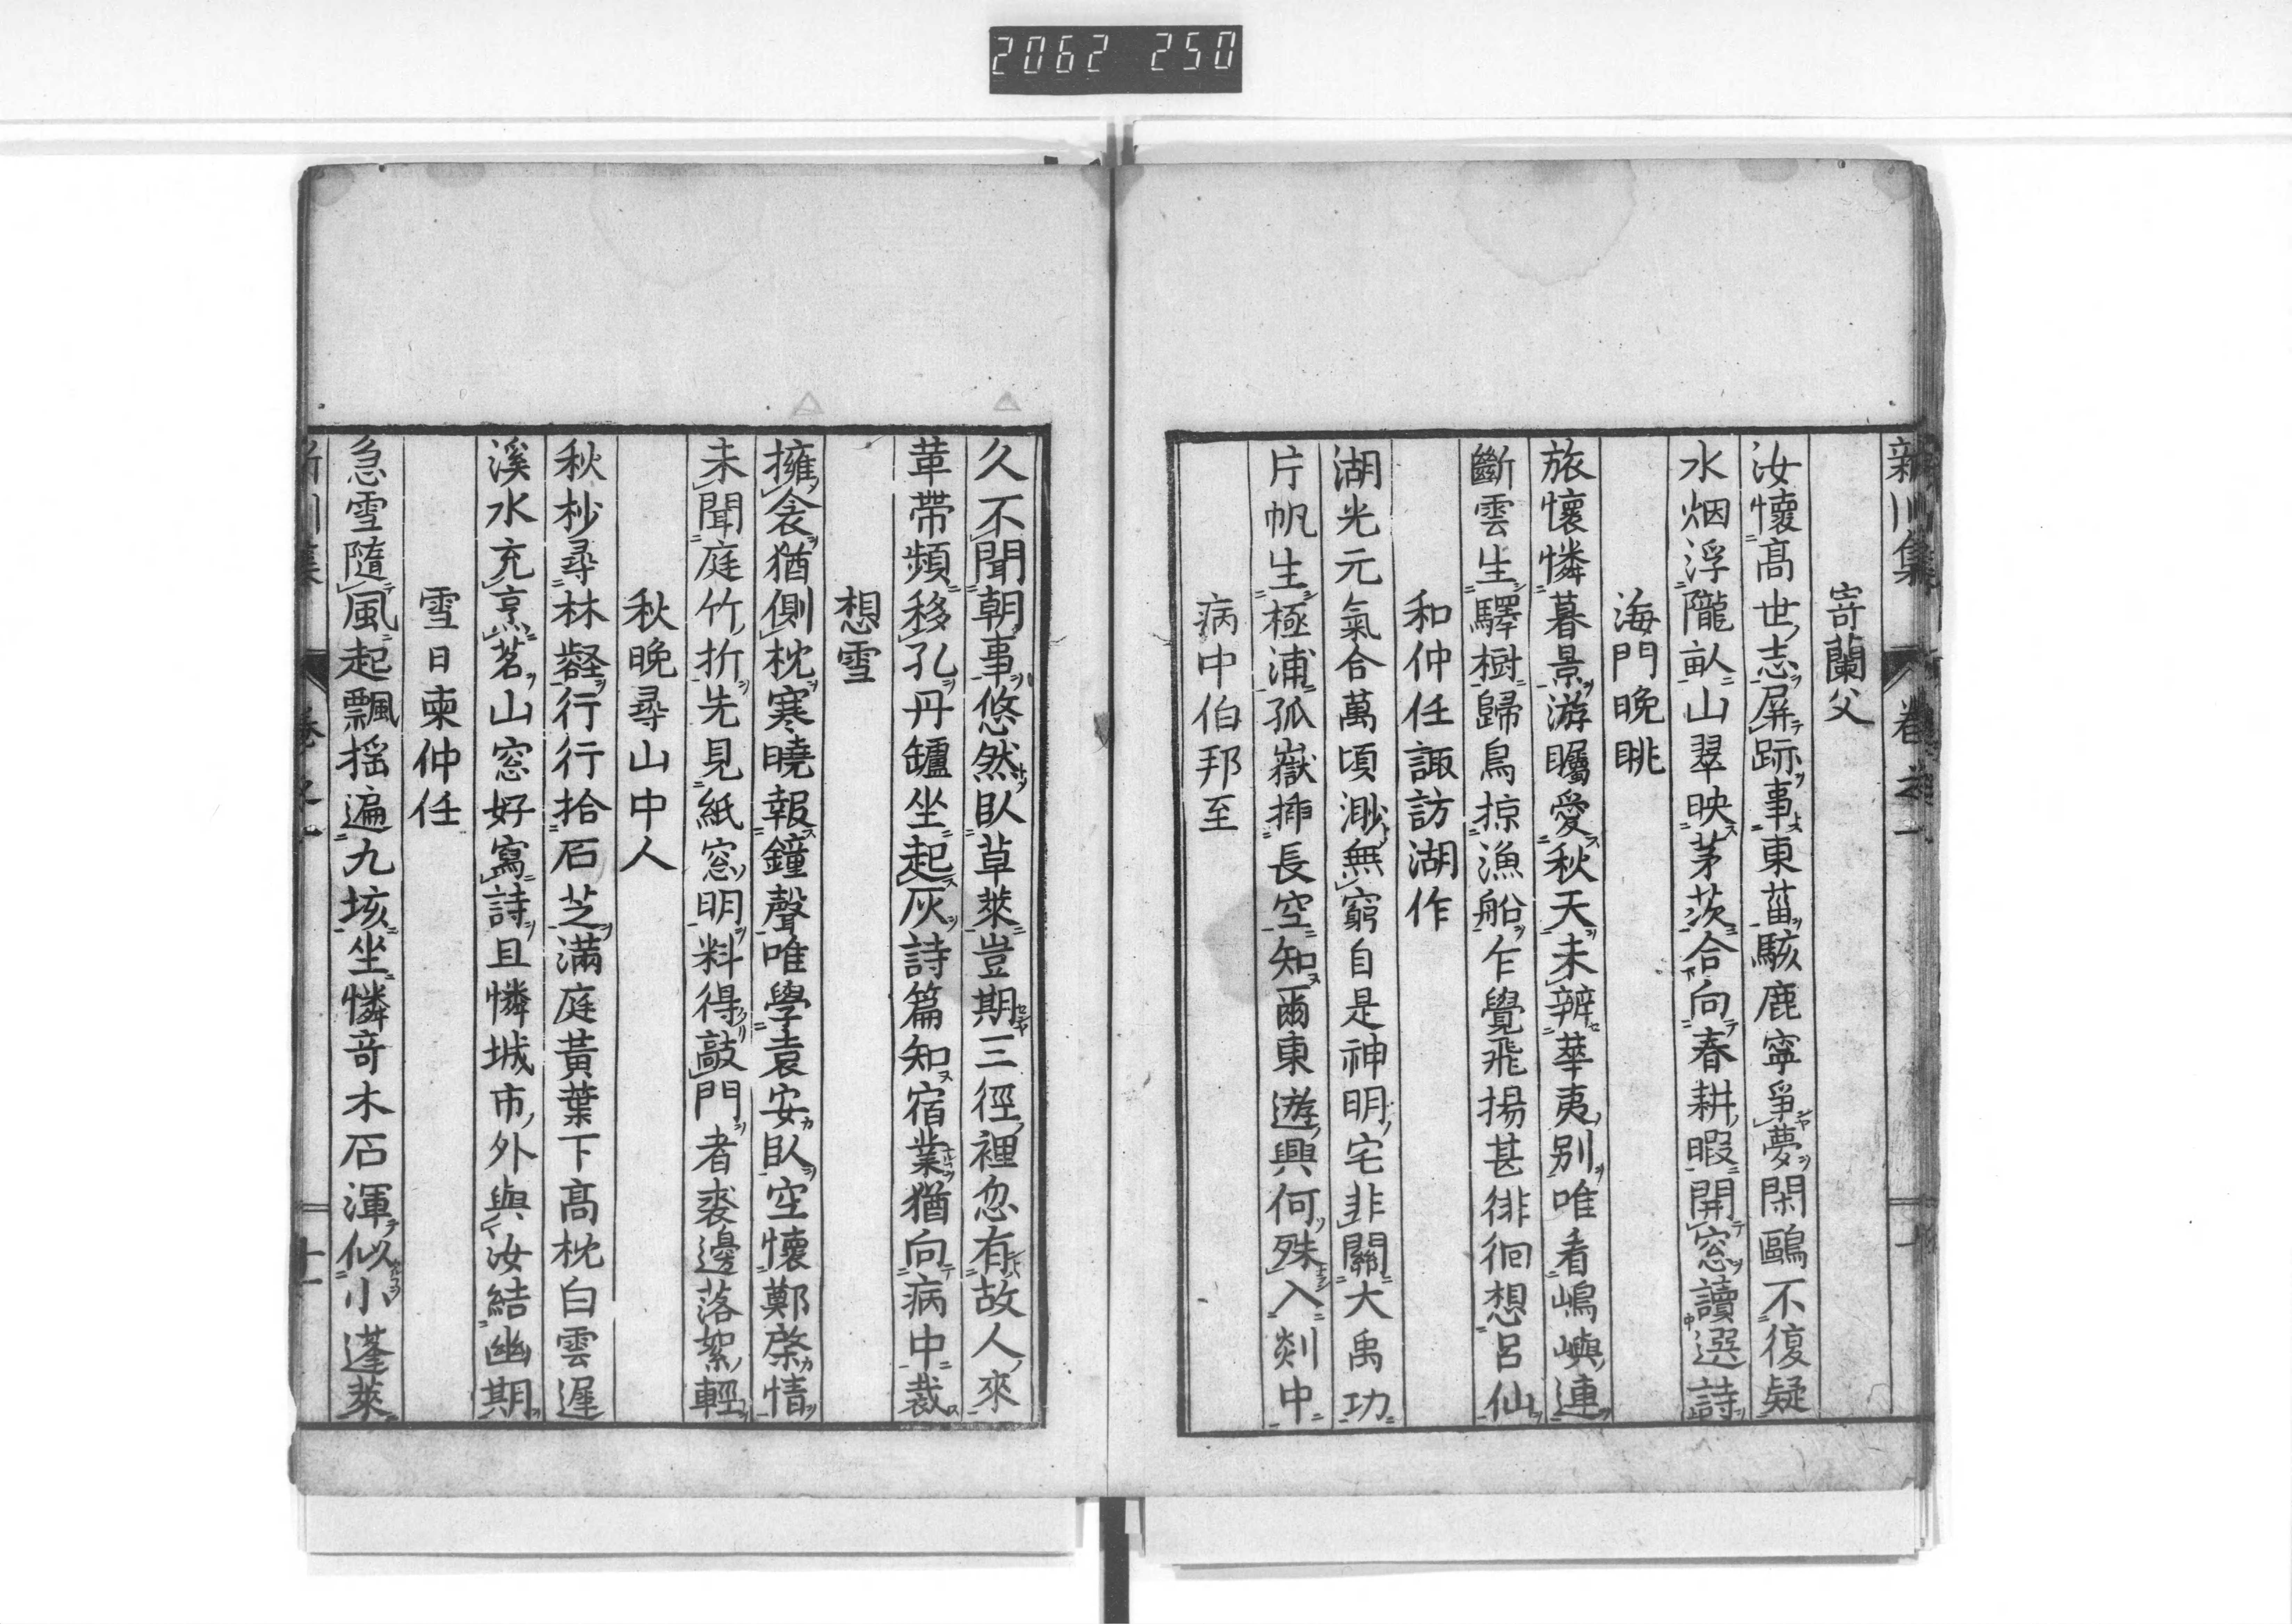 2062 250
新川集 卷之一
寄蘭父
汝懷高世志屏跡事東菑駭鹿寧爭夢閑鷗不復疑
水烟浮隴畝山翠映茅茨合向春耕暇開窓讀選詩
海門晚眺
旅懷憐暮景游矚愛秋天未辨華夷別唯看嶋嶼連
斷雲生驛樹歸鳥掠漁船乍覺飛揚甚徘徊想呂仙
和仲任諏訪湖作
湖光元氣合萬頃渺無窮自是神明宅非關大禹功
片帆生極浦孤嶽揷長空知爾東遊興何殊入剡中
病中伯邦至
久不聞朝事悠然臥草萊豈期三徑裡忽有故人來
革帶頻移孔丹罏坐起灰詩篇知宿業猶向病中裁
想雪
擁衾猶側枕寒曉報鐘聲唯學袁安臥空懷鄭棨情
未聞庭竹折先見紙窓明料得敲門者裘邊落絮輕
秋晚尋山中人
秋杪尋林壑行行拾石芝滿庭黃葉下高枕白雲遲
溪水充烹茗山窓好寫詩且憐城市外與汝結幽期
雪日柬仲任
急雪隨風起飄搖遍九垓坐憐竒木石渾似小蓬萊
新川集 卷之一 十一